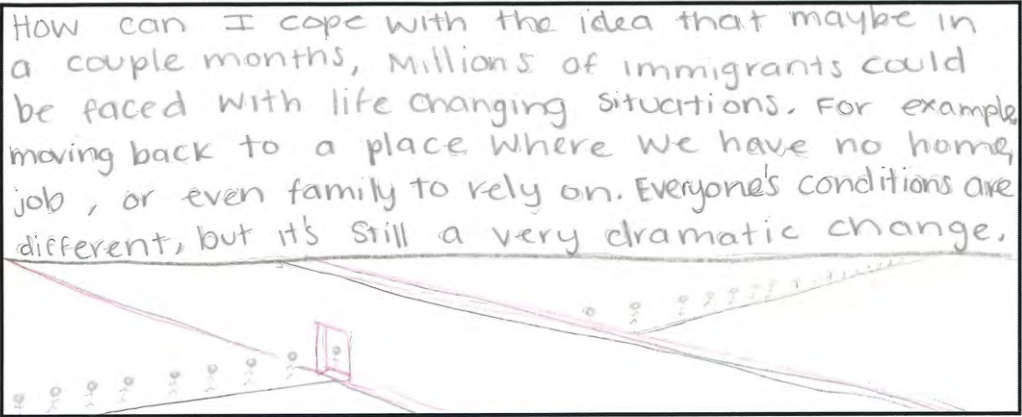 How can I cope with the idea that maybe in
a couple months, Millions of immigrants could
be faced with life changing situations. For example,
moving back to a place where we have no home,
job, or even family to rely on. Everyone's conditions are
different, but it's still a very dramatic change.